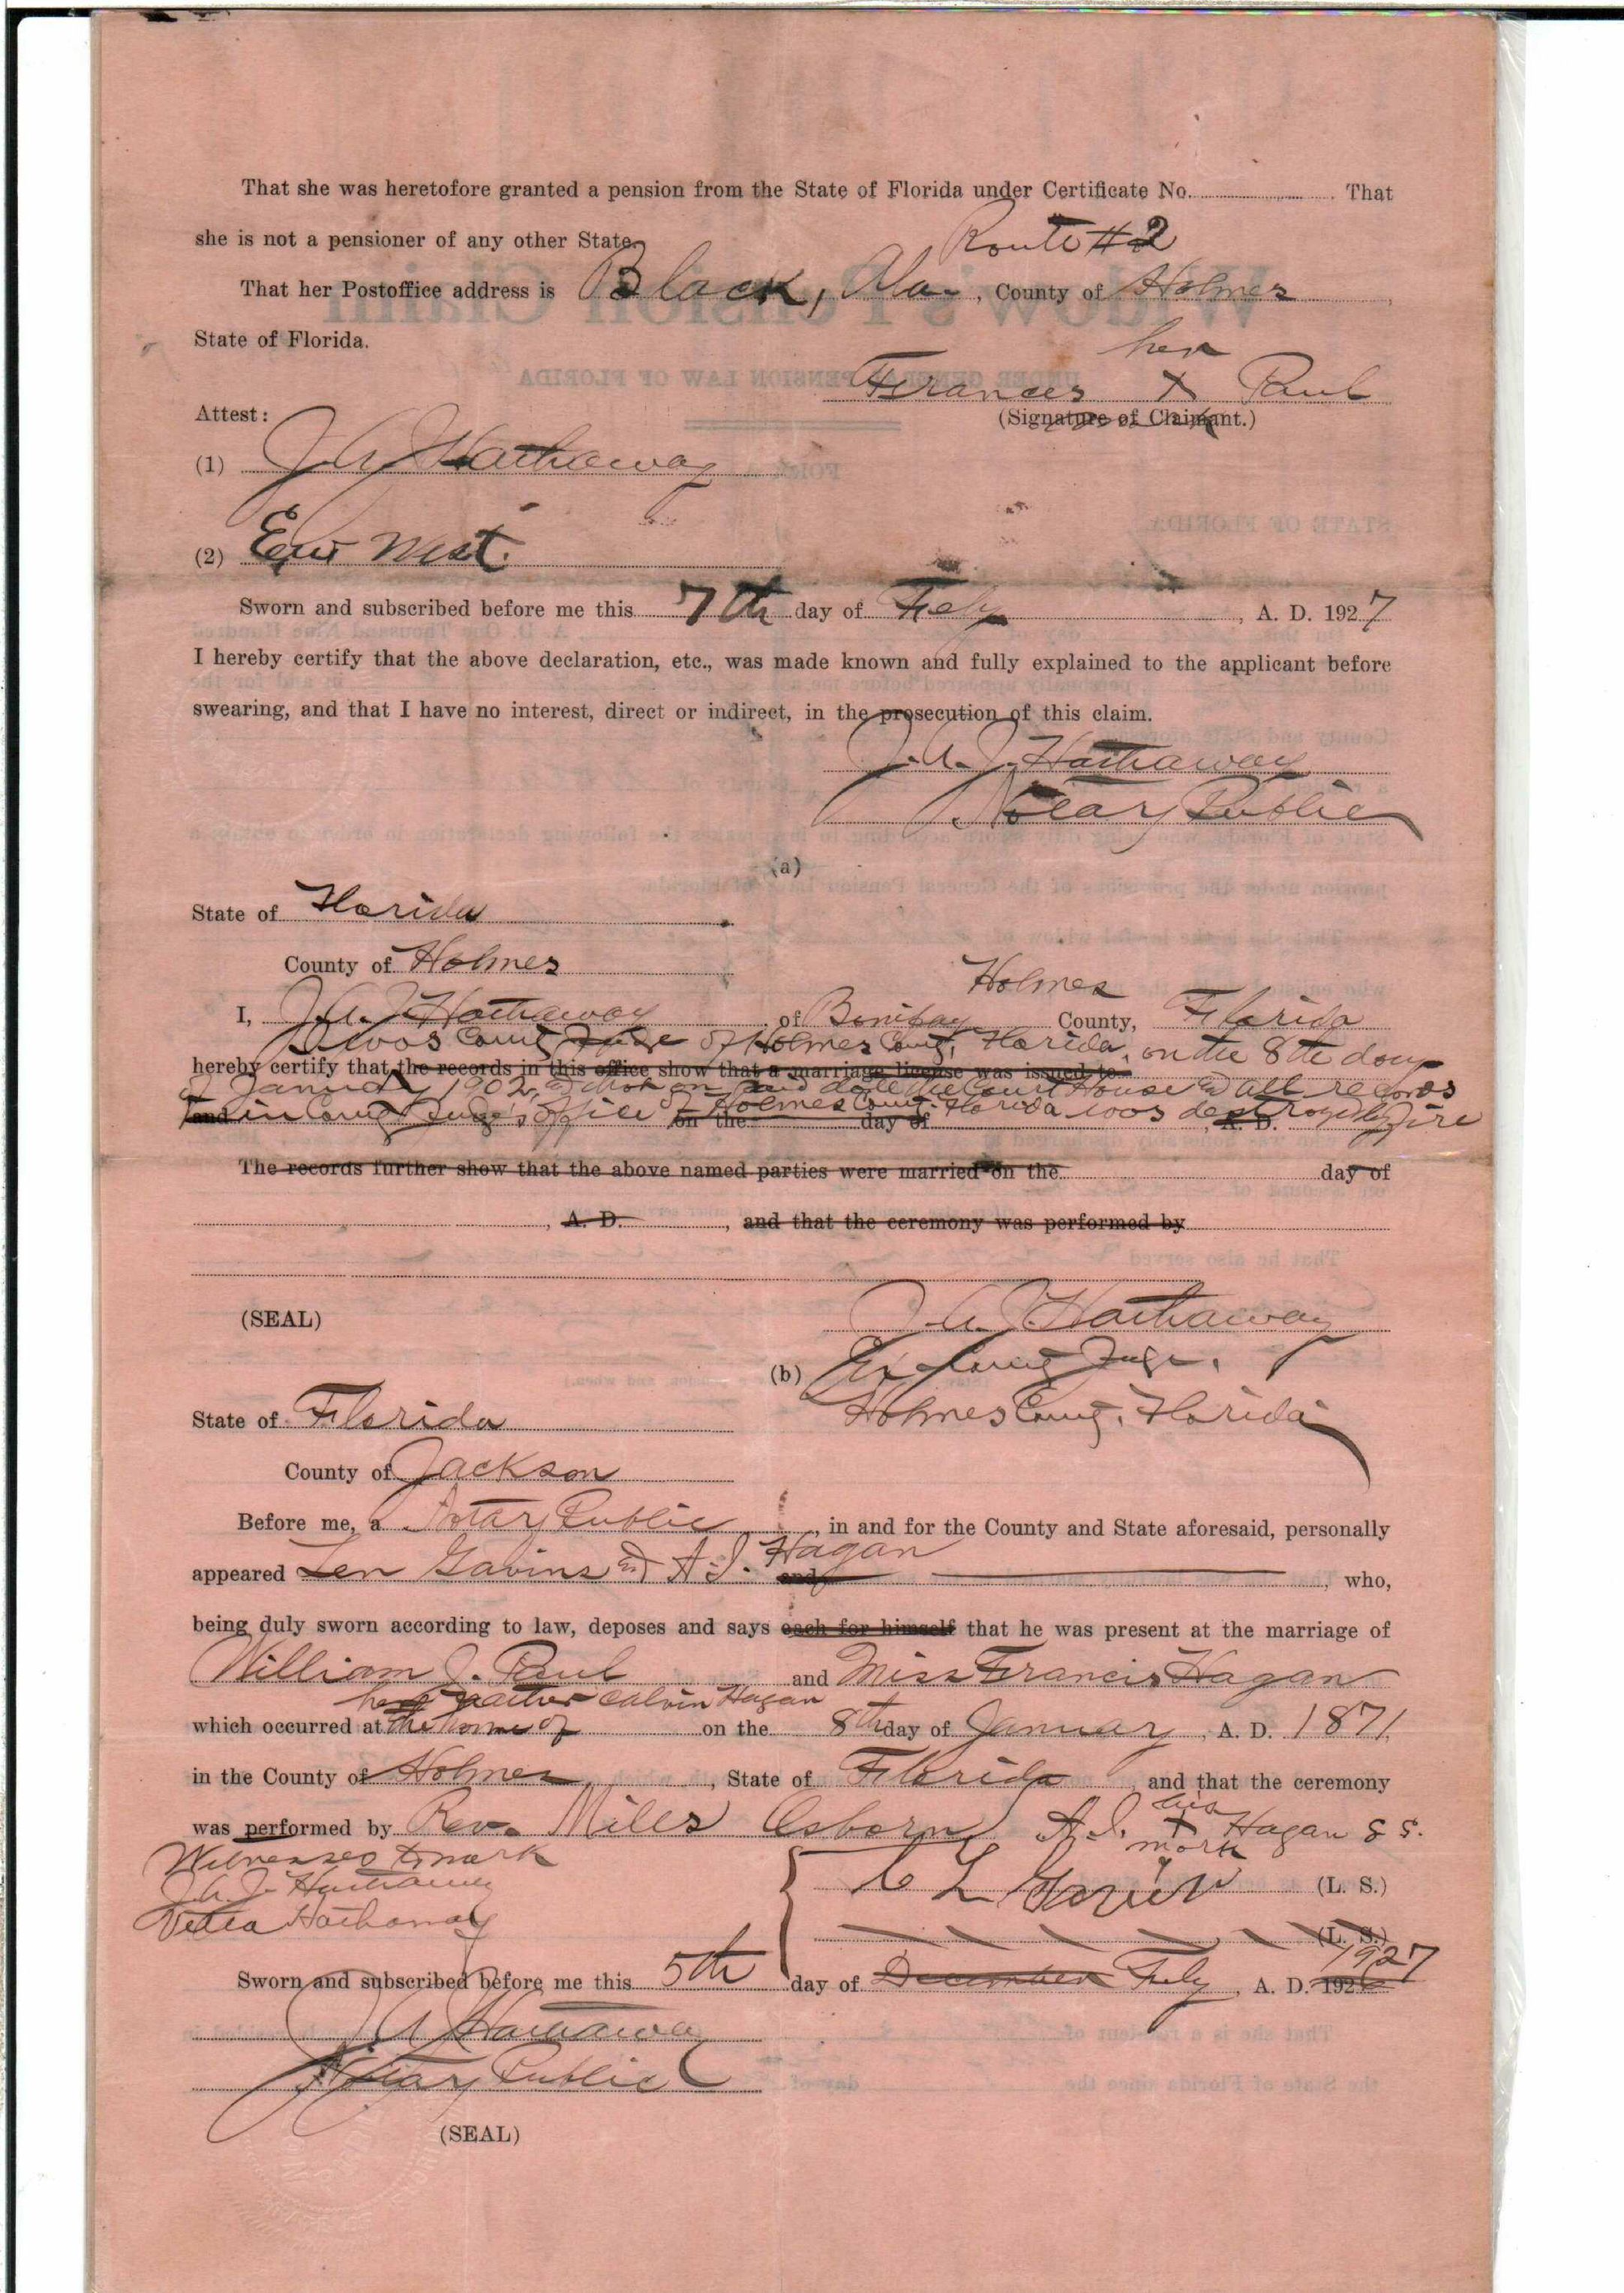 That she was heretofore granted a pension from the State of Florida under Certificate No. That
she is not a pensioner of any other State. Route #2
That her Postoffice address is Black, Ala., County of Holmes,
State of Florida.
her
Frances X Paul
(Signature of Claimant.)
Attest:
(1) J A J Hathaway
(2) West.
Sworn and subscribed before me this 7th day of Feby, A. D. 1927
I hereby certify that the above declaration, etc., was made known and fully explained to the applicant before
swearing, and that I have no interest, direct or indirect, in the prosecution of this claim.
J. A. J. Hathaway
Notary Public
(a)
State of Florida
County of Holmes
Holmes
I, J. A. J. Hathaway of Bonifay County, Florida
was County Judge of Holmes County, Florida, on the 8th day
hereby certify that the records in this office show that a marriage license was issued to
of January 1902, and that on said date the Court House and all records
and in County Judge's office of Holmes County Florida was destroyed by fire
on the day of A. D.
The records further show that the above named parties were married on the day of
, A. D. , and that the ceremony was performed by
(SEAL)
J. A. J. Hathaway
(b) Ex County Judge.
Holmes County, Florida
State of Florida
County of Jackson
Before me, a Notary Public, in and for the County and State aforesaid, personally
appeared Len Gavins and A. J. Hagan and , who,
being duly sworn according to law, deposes and says each for himself that he was present at the marriage of
William J. Paul and Miss Francis Hagan
her father Calvin Hagan
which occurred at the home of on the 8th day of January, A. D. 1871,
in the County of Holmes, State of Florida, and that the ceremony
was performed by Rev. Miles Osborn
his
A. J. X Hagan
mark
Witnesses to mark
J. A. J. Hathaway
Hathaway
C L (L. S.)
(L. S.)
1927
Sworn and subscribed before me this 5th day of December Feby, A. D. 192
J A J Hathaway
Notary Public
(SEAL)